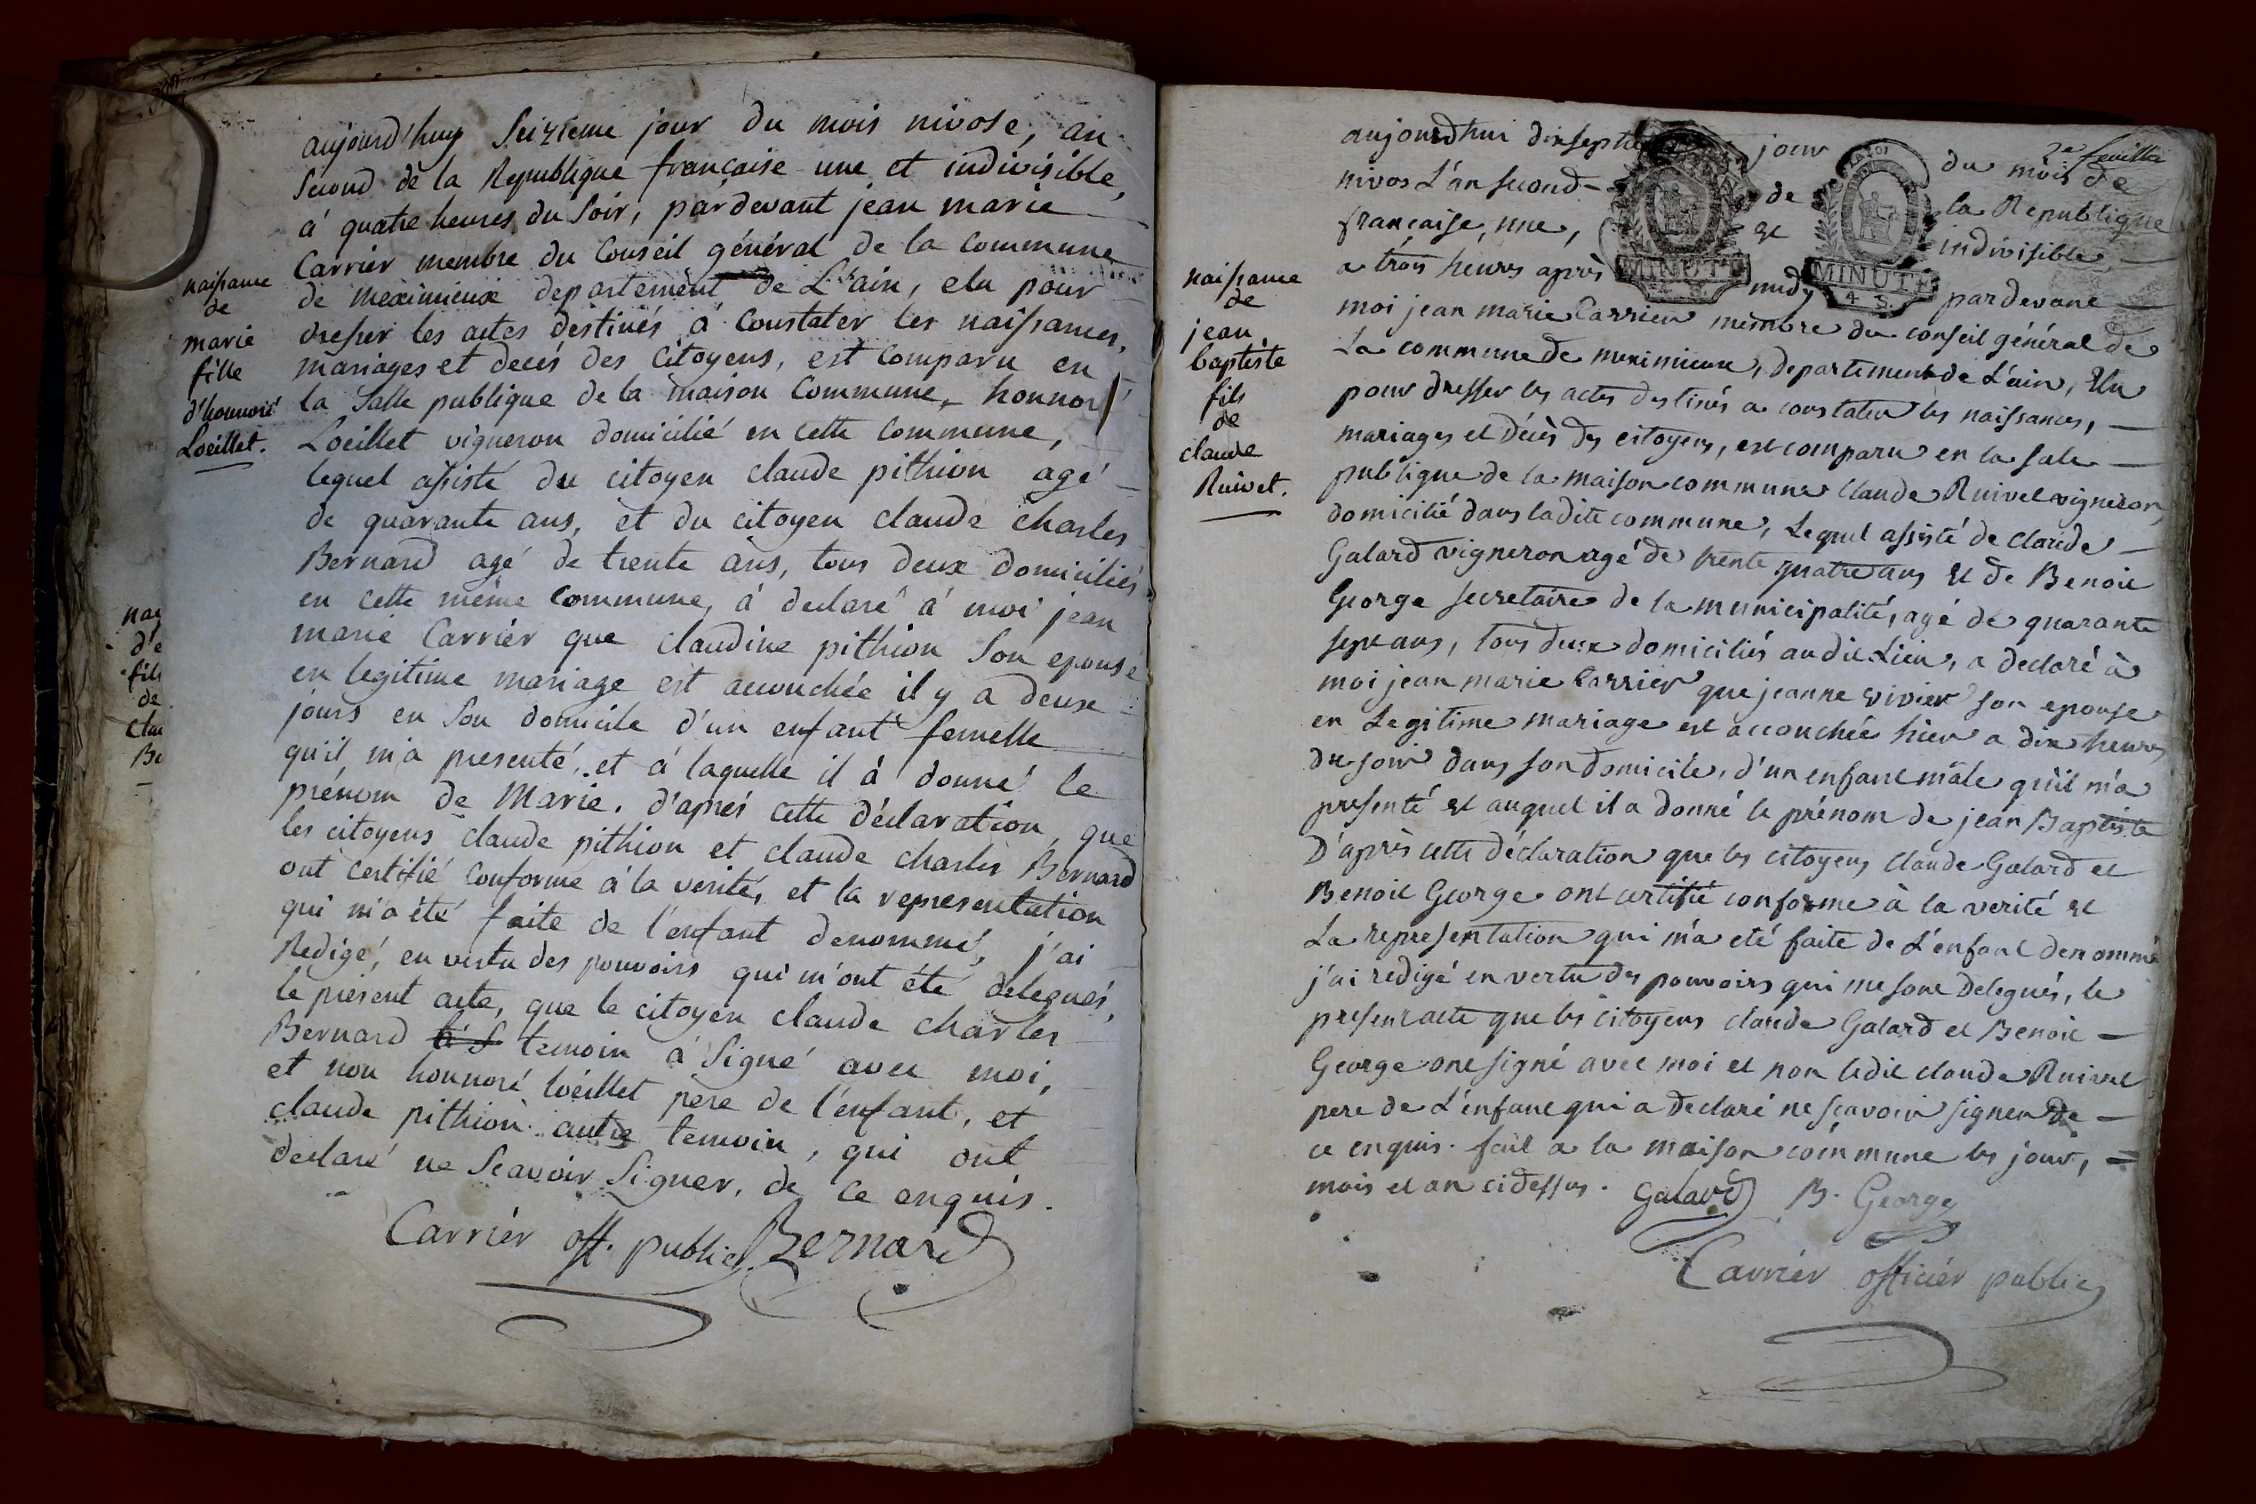 naissance
de
marie
fille
d'honnoré
Loeillet.
aujourd'huy Seizieme jour du mois nivose, an
Second de la Republique française une et indivisible,
à quatre heures du Soir, pardevant jean marie
Carrier membre du Conseil général de la Commune
de meximieux departement de L'ain, elu pour
dresser les actes destinés à Constater les naissances,
mariages et decès des Citoyens, est Comparu en
la Salle publique de la maison Commune, honnoré
Loeillet vigneron domicilié en cette Commune,
lequel assisté du citoyen claude pithion agé
de quarante ans, et du citoyen claude charles
Bernard agé de trente ans, tous deux domiciliés
en cette même commune, à declaré à moi jean
marie Carrier que claudine pithion Son epouse
en legitime mariage est accouchée il y a deux
jours en Son domicile d'un enfant femelle
qu'il m'a presenté, et à laquelle il à donné le
prénom de Marie. d'après cette déclaration, que
les citoyens claude pithion et claude charles Bernard
ont certifié Conforme à la verité, et la representation
qui m'a été faite de l'enfant denommé, j'ai
Redigé, en vertu des pouvoirs qui m'ont été delegués,
le présent acte, que le citoyen claude charles
Bernard temoin à Signé avec moi,
et non honnoré loeillet père de l'enfant, et
claude pithion autre temoin, qui ont
declaré ne Scavoir Signer, de ce enquis.
Carrier off. public Bernard
nai
d'e
fils
de
Clau
Be
2e feuille
naissance
de
jean
baptiste
fils
de
claude
Ruivet.
aujourdhui dixseptieme jour du mois de
nivos L'an second de la Republique
française, une, et indivisible
a trois heures après midy pardevant
MINUTE
MINUTE
4 S.
moi jean marie Carrier membre du conseil général de
La commune de meximieux, departement de L'ain, Elu
pour dresser les actes destinés a constater les naissances,
mariages et décès des citoyens, est comparu en la sale
publique de la maison commune Claude Ruivet vigneron,
domicilié dans ladite commune, Lequel assisté de claude
Galard vigneron agé de trente quatre ans et de Benoit
George secretaire de la municipalité, agé de quarante
sept ans, tous deux domiciliés audit Lieu, a declaré à
moi jean marie Carrier que jeanne vivier son epouse
en Legitime mariage est accouchée hier a dix heures
du soir dans son domicile, d'un enfant mâle qu'il m'a
presenté et auquel il a donné le prénom de jean Baptiste
D'après cette déclaration que les citoyens Claude Galard et
Benoit George ont certifié conforme à la verité et
La representation qui m'a eté faite de L'enfant denommé
j'ai redigé en vertu des pouvoirs qui me sont delegués, le
present acte que les citoyens claude Galard et Benoit
George ont signé avec moi et non ledit claude Ruivet
pere de L'enfant qui a declaré ne scavoir signer de
ce enquis. fait a la maison commune les jour,
mois et an cidessus. Galard B. George
Carrier officier public